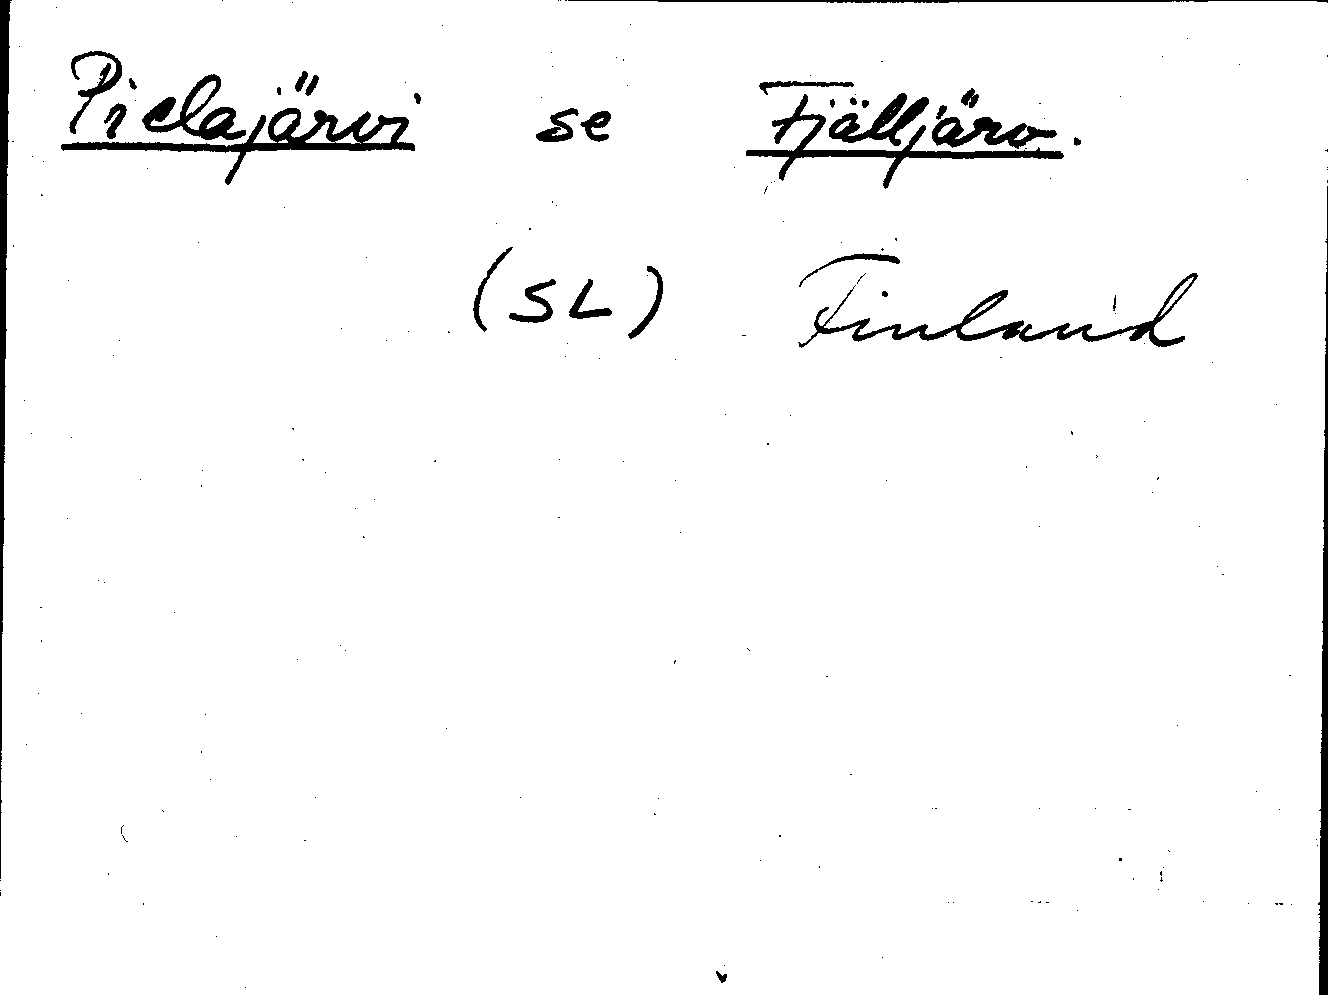 Pielajärvi se Fjälljärv.
(SL) Finland